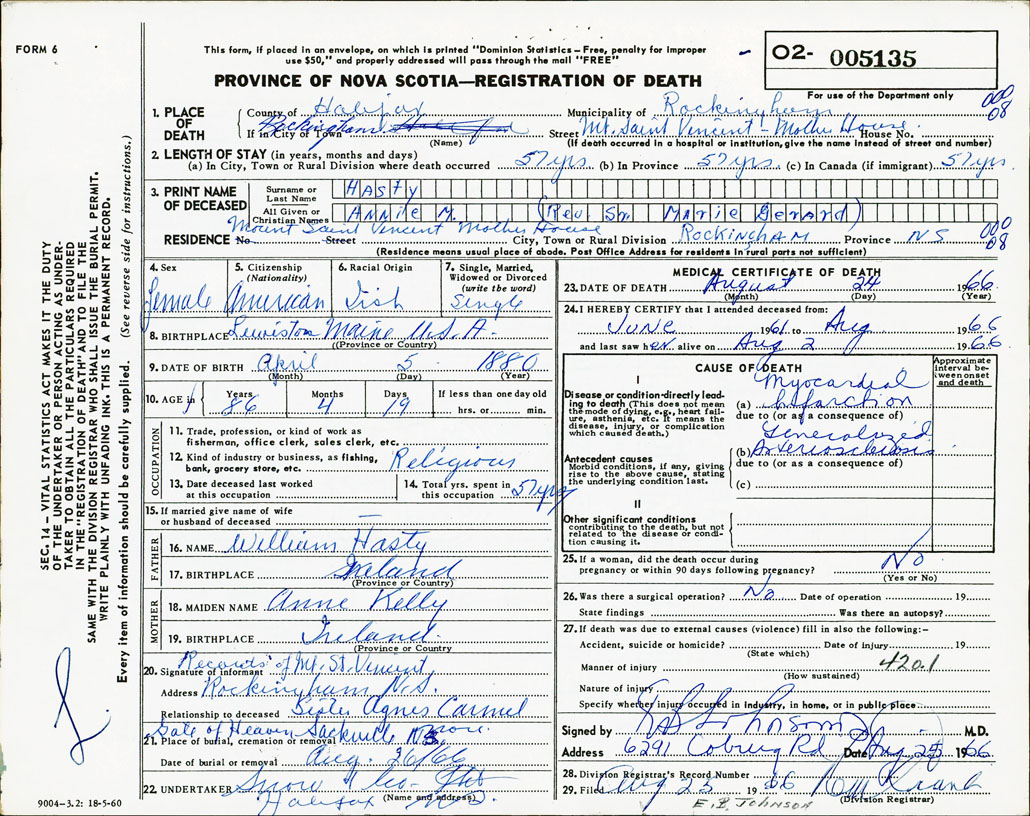 FORM 6
This form, if placed in an envelope, on which is printed "Dominion Statistics – Free, penalty for improper
use $50," and properly addressed will pass through the mail "FREE"
PROVINCE OF NOVA SCOTIA—REGISTRATION OF DEATH
O2- 005135
For use of the Department only
SEC. 14 – VITAL STATISTICS ACT MAKES IT THE DUTY
OF THE UNDERTAKER OR PERSON ACTING AS UNDER-
TAKER TO OBTAIN ALL THE PARTICULARS REQUIRED
IN THE "REGISTRATION OF DEATH" AND TO FILE THE
SAME WITH THE DIVISION REGISTRAR WHO SHALL ISSUE THE BURIAL PERMIT.
WRITE PLAINLY WITH UNFADING INK. THIS IS A PERMANENT RECORD.
Every item of information should be carefully supplied. (See reverse side for instructions.)
1. PLACE OF DEATH
County of Halifax Municipality of Rockingham 000 08
If in City or Town Rockingham Halifax (Name) Street Mt. Saint Vincent – Mother House House No.
(If death occurred in a hospital or institution, give the name instead of street and number)
2. LENGTH OF STAY (in years, months and days)
(a) In City, Town or Rural Division where death occurred 57 yrs. (b) In Province 57 yrs. (c) In Canada (if immigrant) 57 yrs
3. PRINT NAME OF DECEASED
Surname or Last Name HASTY
All Given or Christian Names ANNIE M. (Rev. Sr. Marie Gerard)
RESIDENCE No. Street Mount Saint Vincent Mother House City, Town or Rural Division ROCKINGHAM Province NS 000 08
(Residence means usual place of abode. Post Office Address for residents in rural parts not sufficient)
4. Sex Female
5. Citizenship (Nationality) American
6. Racial Origin Irish
7. Single, Married, Widowed or Divorced (write the word) Single
8. BIRTHPLACE Lewiston Maine U.S.A.
(Province or Country)
9. DATE OF BIRTH April 5 1880
(Month) (Day) (Year)
10. AGE in Years 86 Months 4 Days 19 If less than one day old hrs. or min.
OCCUPATION
11. Trade, profession, or kind of work as
fisherman, office clerk, sales clerk, etc.
12. Kind of industry or business, as fishing,
bank, grocery store, etc. Religious
13. Date deceased last worked
at this occupation
14. Total yrs. spent in
this occupation 57 yrs
15. If married give name of wife
or husband of deceased —
FATHER
16. NAME William Hasty
17. BIRTHPLACE Ireland
(Province or Country)
MOTHER
18. MAIDEN NAME Anne Kelly
19. BIRTHPLACE Ireland
(Province or Country)
20. Signature of informant Records of Mt. St. Vincent
Address Rockingham N.S.
Relationship to deceased Sister Agnes Carmel
21. Place of burial, cremation or removal Gate of Heaven Sackville N.S.
Date of burial or removal Aug. 26/66
22. UNDERTAKER Snow & Co.
(Name and address) Halifax N.S.
9004–3.2: 18-5-60
MEDICAL CERTIFICATE OF DEATH
23. DATE OF DEATH August 24 1966
(Month) (Day) (Year)
24. I HEREBY CERTIFY that I attended deceased from:
June 1961 to Aug 1966
and last saw her alive on Aug 2 1966
CAUSE OF DEATH
Approximate interval between onset and death
I
Disease or condition directly lead-
ing to death (This does not mean
the mode of dying, e.g., heart fail-
ure, asthenia, etc. It means the
disease, injury, or complication
which caused death.)
(a) Myocardial Infarction
due to (or as a consequence of)
Antecedent causes
Morbid conditions, if any, giving
rise to the above cause, stating
the underlying condition last.
(b) Generalized Arteriosclerosis
due to (or as a consequence of)
(c)
II
Other significant conditions
contributing to the death, but not
related to the disease or condi-
tion causing it.
25. If a woman, did the death occur during
pregnancy or within 90 days following pregnancy? No
(Yes or No)
26. Was there a surgical operation? No Date of operation 19
State findings Was there an autopsy?
27. If death was due to external causes (violence) fill in also the following:–
Accident, suicide or homicide? Date of injury 19
(State which)
Manner of injury 420.1
(How sustained)
Nature of injury
Specify whether injury occurred in Industry, in home, or in public place
Signed by Johnson M.D.
Address 6291 Coburg Rd Date Aug 25 1966
28. Division Registrar's Record Number
29. Filed Aug 25 1966
(Division Registrar)
E.B. JOHNSON